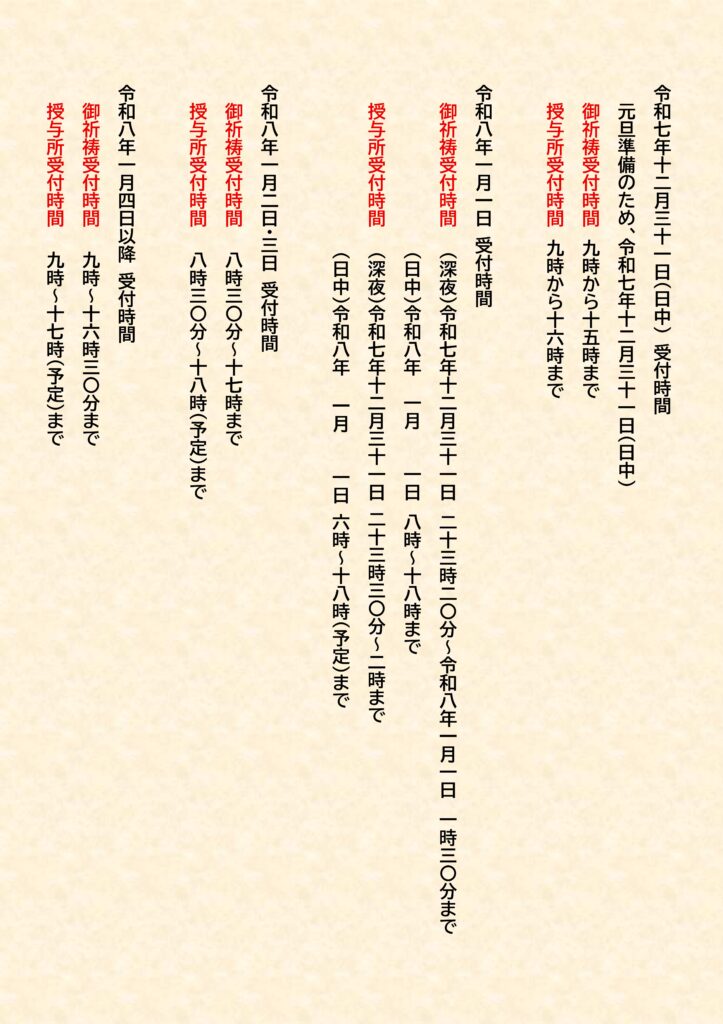 令和七年十二月三十一日(日中) 受付時間
元旦準備のため、令和七年十二月三十一日(日中)
御祈祷受付時間 九時から十五時まで
授与所受付時間 九時から十六時まで
令和八年一月一日 受付時間
御祈祷受付時間 (深夜)令和七年十二月三十一日 二十三時二〇分～令和八年一月一日 一時三〇分まで
(日中)令和八年 一月 一日 八時～十八時まで
授与所受付時間 (深夜)令和七年十二月三十一日 二十三時三〇分～二時まで
(日中)令和八年 一月 一日 六時～十八時(予定)まで
令和八年一月二日・三日 受付時間
御祈祷受付時間 八時三〇分～十七時まで
授与所受付時間 八時三〇分～十八時(予定)まで
令和八年一月四日以降 受付時間
御祈祷受付時間 九時～十六時三〇分まで
授与所受付時間 九時～十七時(予定)まで